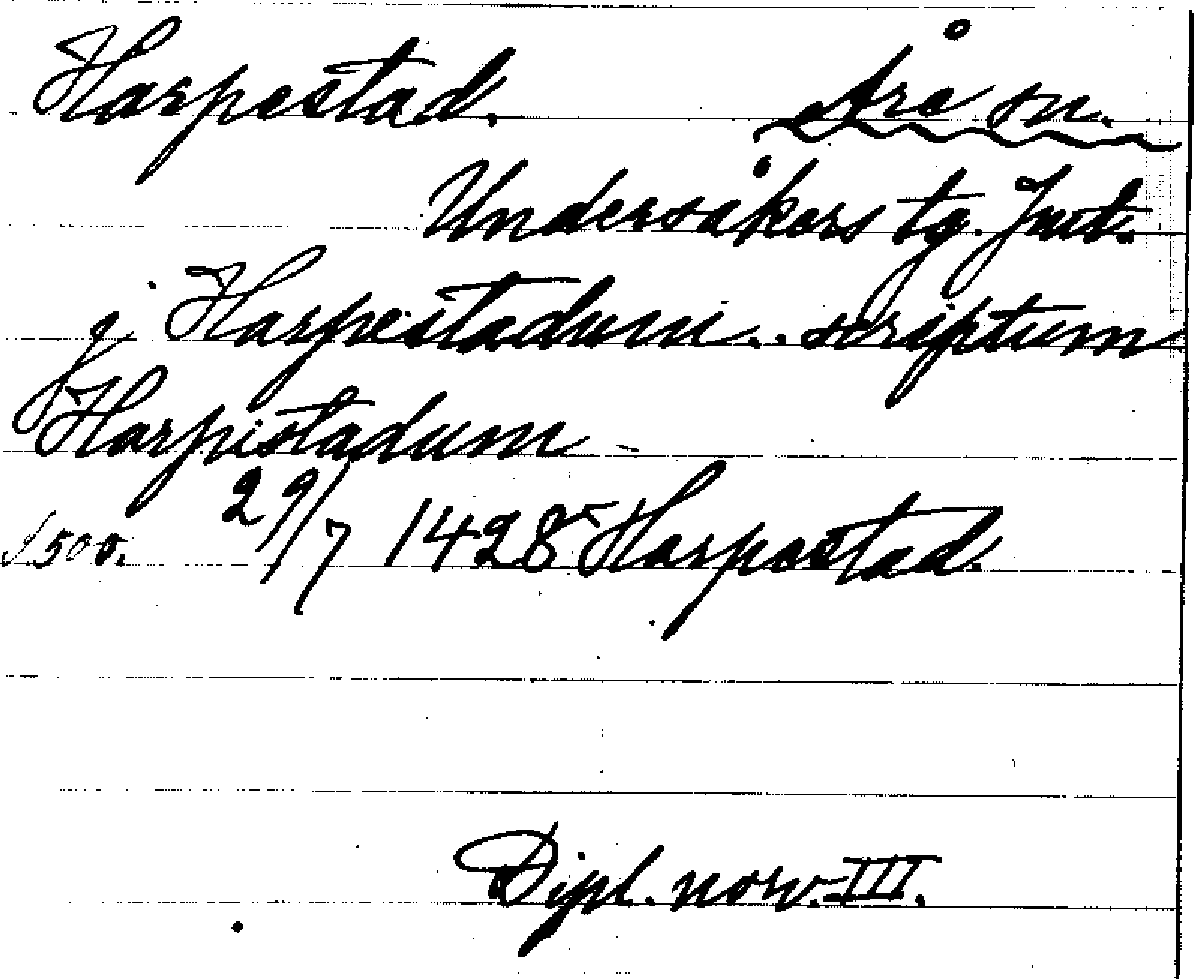 Harpestad. Åre sn.
Undersåkers tg. Jmt.
j Harpestadum.. scriptum
Harpistadum -
S. 500. 29/7 1428 Harpestad.
Dipl. norv. III.